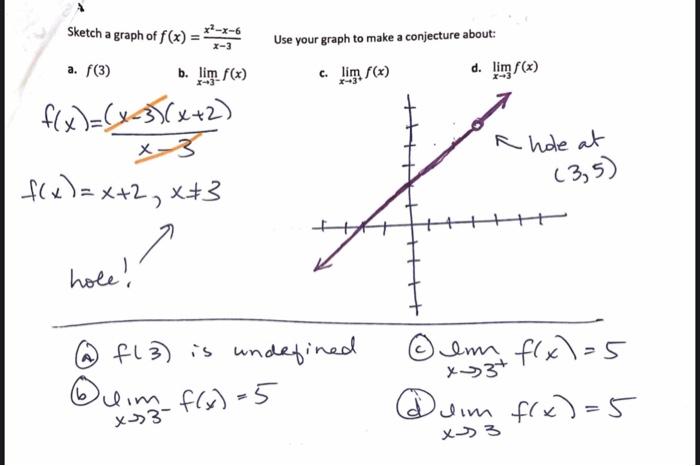 Sketch a graph of f(x) = x²−x−6 / x−3    Use your graph to make a conjecture about:
a. f(3)    b. lim x→3⁻ f(x)    c. lim x→3⁺ f(x)    d. lim x→3 f(x)
f(x)=(x-3)(x+2) / x-3
f(x)=x+2, x≠3
hole!
hole at
(3,5)
ⓐ f(3) is undefined
ⓑ lim x→3⁻ f(x)=5
ⓒ lim x→3⁺ f(x)=5
ⓓ lim x→3 f(x)=5